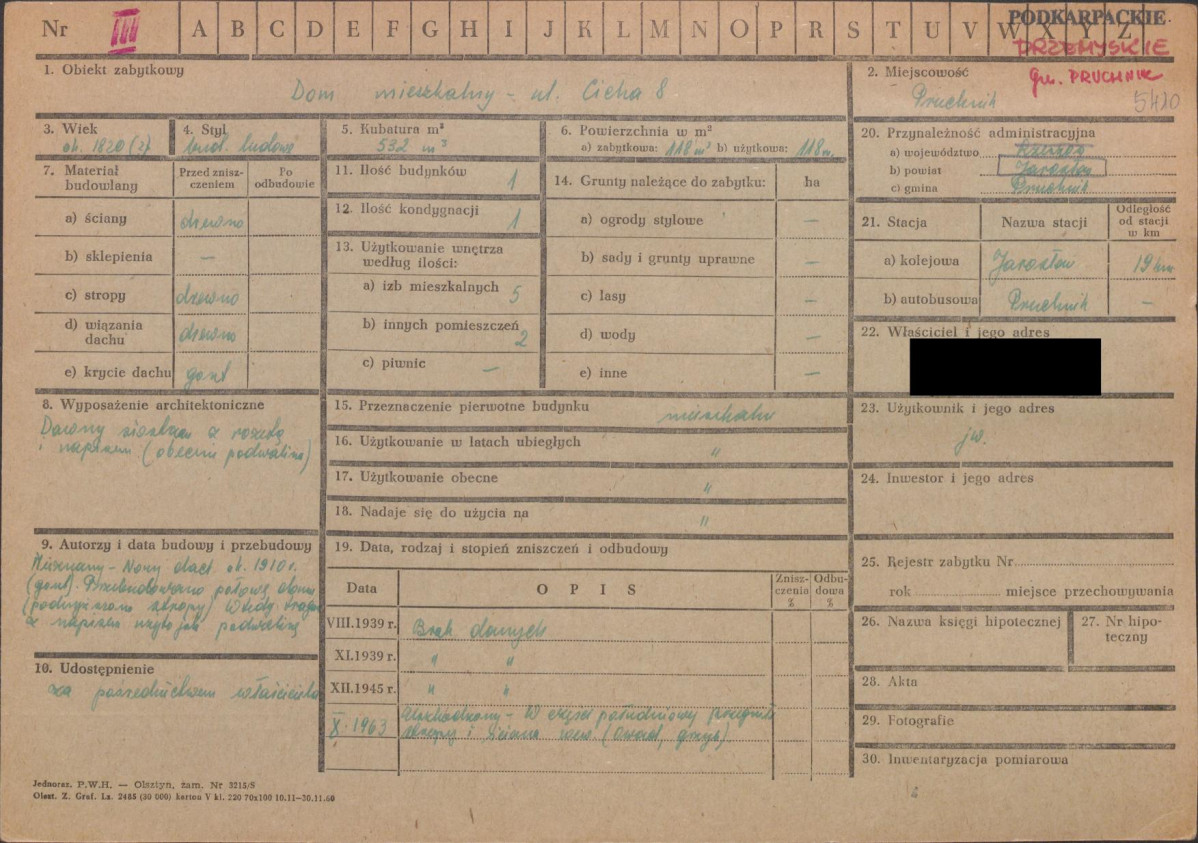 Nr III A B C D E F G H I J K L M N O P R S T U V W X Y Z
PODKARPACKIE
PRZEMYSKIE
gm. PRUCHNIK
5410
1. Obiekt zabytkowy
Dom mieszkalny - ul. Cicha 8
2. Miejscowość
Pruchnik
3. Wiek
ok. 1820 (?)
4. Styl
bud. ludowe
5. Kubatura m³
532 m³
6. Powierzchnia w m²
a) zabytkowa: 118 m² b) użytkowa: 118 m.
7. Materiał budowlany
Przed zniszczeniem
Po odbudowie
a) ściany drewno
b) sklepienia —
c) stropy drewno
d) wiązania dachu drewno
e) krycie dachu gont
8. Wyposażenie architektoniczne
Dawny siostrzan z rozetą
i napisem (obecnie podwalina)
9. Autorzy i data budowy i przebudowy
Nieznany - Nowy dach ok. 1910 r.
(gont). Przebudowano połowę domu
(podwyższono stropy) Wtedy tragarz
z napisem użyto jak podwalinę
10. Udostępnienie
za pośrednictwem właściciela
11. Ilość budynków 1
12. Ilość kondygnacji 1
13. Użytkowanie wnętrza według ilości:
a) izb mieszkalnych 5
b) innych pomieszczeń 2
c) piwnic —
14. Grunty należące do zabytku: ha
a) ogrody stylowe —
b) sady i grunty uprawne —
c) lasy —
d) wody —
e) inne —
15. Przeznaczenie pierwotne budynku mieszkalne
16. Użytkowanie w latach ubiegłych "
17. Użytkowanie obecne "
18. Nadaje się do użycia na "
19. Data, rodzaj i stopień zniszczeń i odbudowy
Data OPIS Zniszczenia % Odbudowa %
VIII.1939 r. Brak danych
XI.1939 r. " "
XII.1945 r. " "
X. 1963 Uszkodzony - W części południowej przegniłe
stropy i ściana wew. (owad, grzyb).
20. Przynależność administracyjna
a) województwo Rzeszów
b) powiat Jarosław
c) gmina Pruchnik
21. Stacja Nazwa stacji Odległość od stacji w km
a) kolejowa Jarosław 19 km
b) autobusowa Pruchnik —
22. Właściciel i jego adres
23. Użytkownik i jego adres
jw.
24. Inwestor i jego adres
25. Rejestr zabytku Nr
rok miejsce przechowywania
26. Nazwa księgi hipotecznej
27. Nr hipoteczny
28. Akta
29. Fotografie
30. Inwentaryzacja pomiarowa
Jednoraz. P.W.H. — Olsztyn, zam. Nr 3215/S
Olszt. Z. Graf. Lz. 2485 (30 000) karton V kl. 220 70x100 10.11—30.11.60